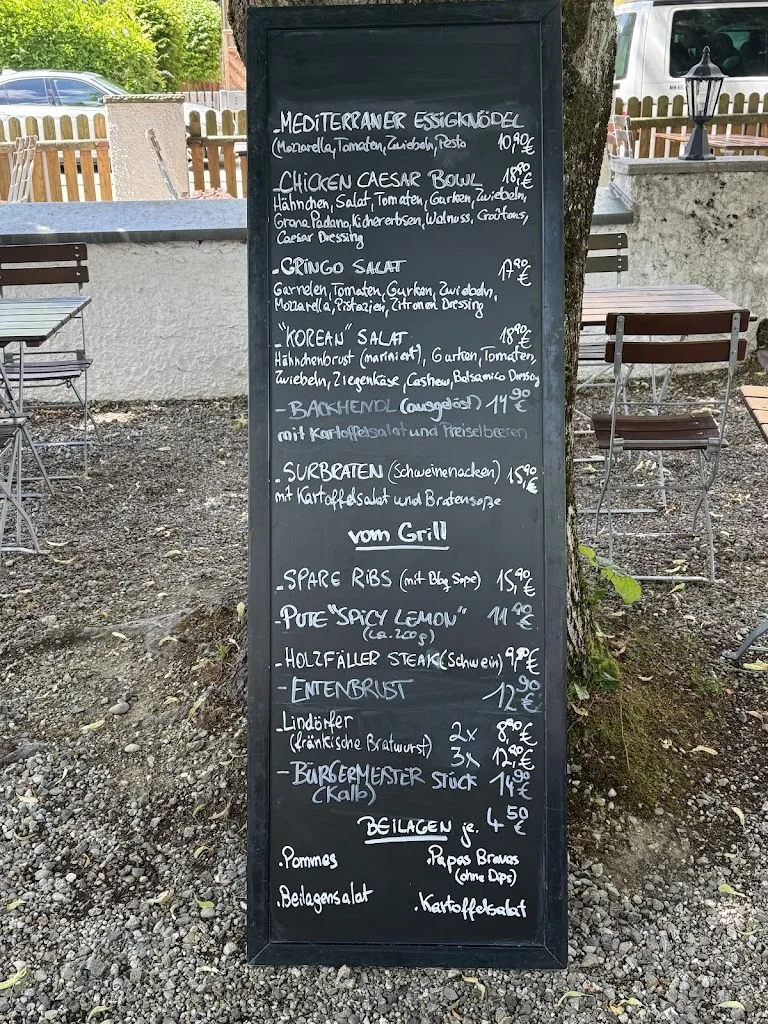 - MEDITERRANER ESSIGKNÖDEL
(Mozzarella, Tomaten, Zwiebeln, Pesto 10,90 €
- CHICKEN CAESAR BOWL 18,90 €
Hähnchen, Salat, Tomaten, Gurken, Zwiebeln,
Grana Padano, Kichererbsen, Walnuss, Croûtons,
Caesar Dressing
- GRINGO SALAT 17,90 €
Garnelen, Tomaten, Gurken, Zwiebeln,
Mozzarella, Pistazien, Zitronen Dressing
- "KOREAN" SALAT 18,90 €
Hähnchenbrust (mariniert), Gurken, Tomaten,
Zwiebeln, Ziegenkäse, Cashew, Balsamico Dressing
- BACKHENDL (ausgelöst) 14,90
mit Kartoffelsalat und Preiselbeeren
- SURBRATEN (Schweinenacken) 15,90 €
mit Kartoffelsalat und Bratensoße
vom Grill
- SPARE RIBS (mit Bbq Soße) 15,90 €
- PUTE "SPICY LEMON" 11,90 €
(ca. 200g)
- HOLZFÄLLER STEAK (Schwein) 9,90 €
- ENTENBRUST 12,90 €
- Lindörfer 2x 8,90 €
(fränkische Bratwurst) 3x 12,90 €
- BÜRGERMEISTER STÜCK 14,90 €
(Kalb)
BEILAGEN je. 4,50 €
. Pommes . Papas Bravas
(ohne Dips)
. Beilagensalat . Kartoffelsalat